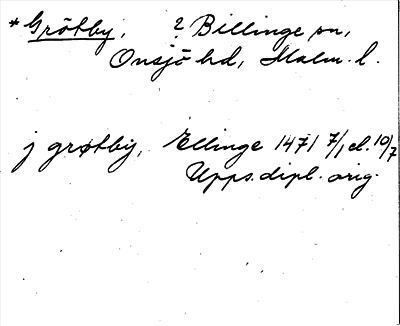 *Grötby, ? Billinge sn,
Onsjö hd, Malm. l.
j grøtby, Ellinge 1471 7/1 el. 10/7
Upps. dipl. orig.